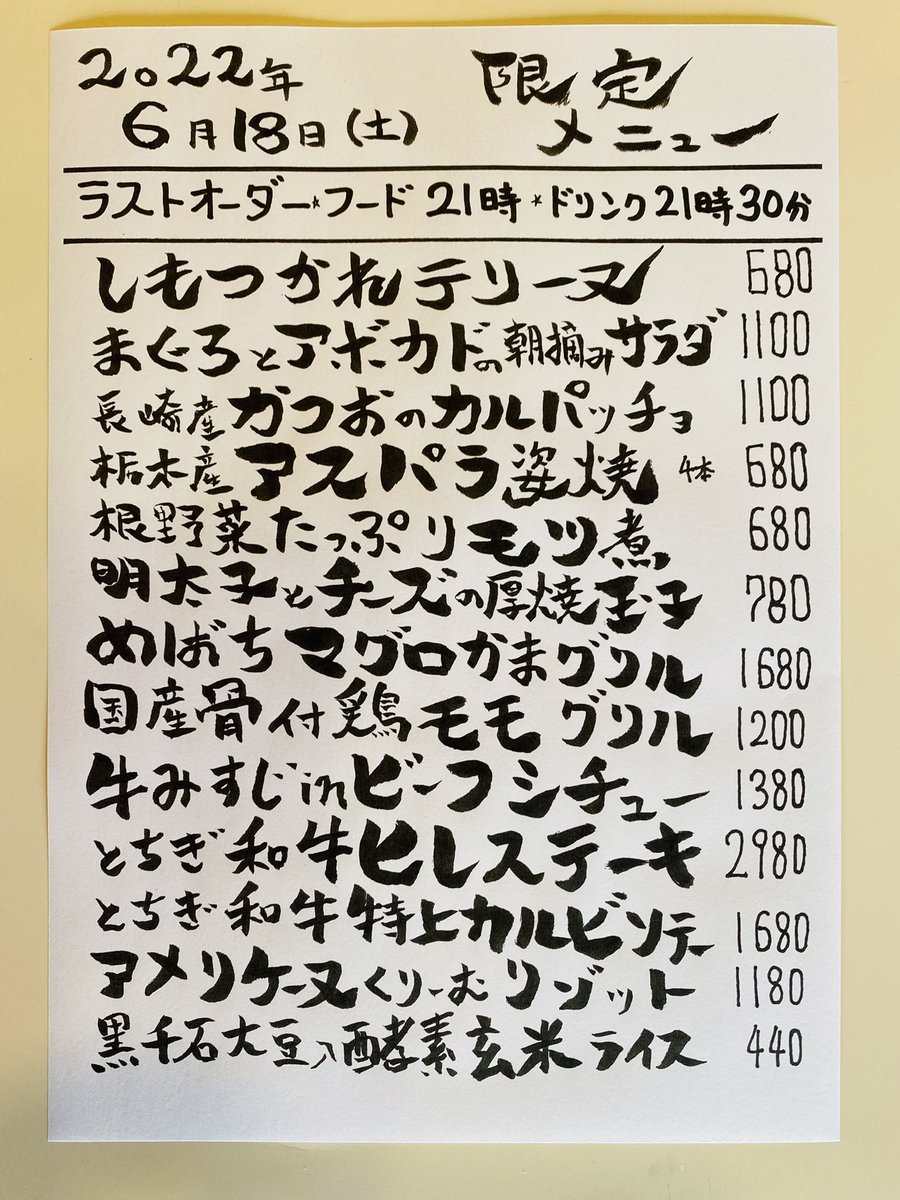 2022年 限定
6月18日(土) メニュー
ラストオーダー*フード 21時 *ドリンク21時30分
しもつかれテリーヌ 680
まぐろとアボカドの朝摘みサラダ 1100
長崎産かつおのカルパッチョ 1100
栃木産アスパラ姿焼 4本 680
根野菜たっぷりモツ煮 680
明太子とチーズの厚焼玉子 780
めばちマグロかまグリル 1680
国産骨付鶏モモグリル 1200
牛みすじinビーフシチュー 1380
とちぎ和牛ヒレステーキ 2980
とちぎ和牛特上カルビソテー 1680
アメリケーヌくりーむリゾット 1180
黒千石大豆入酵素玄米ライス 440